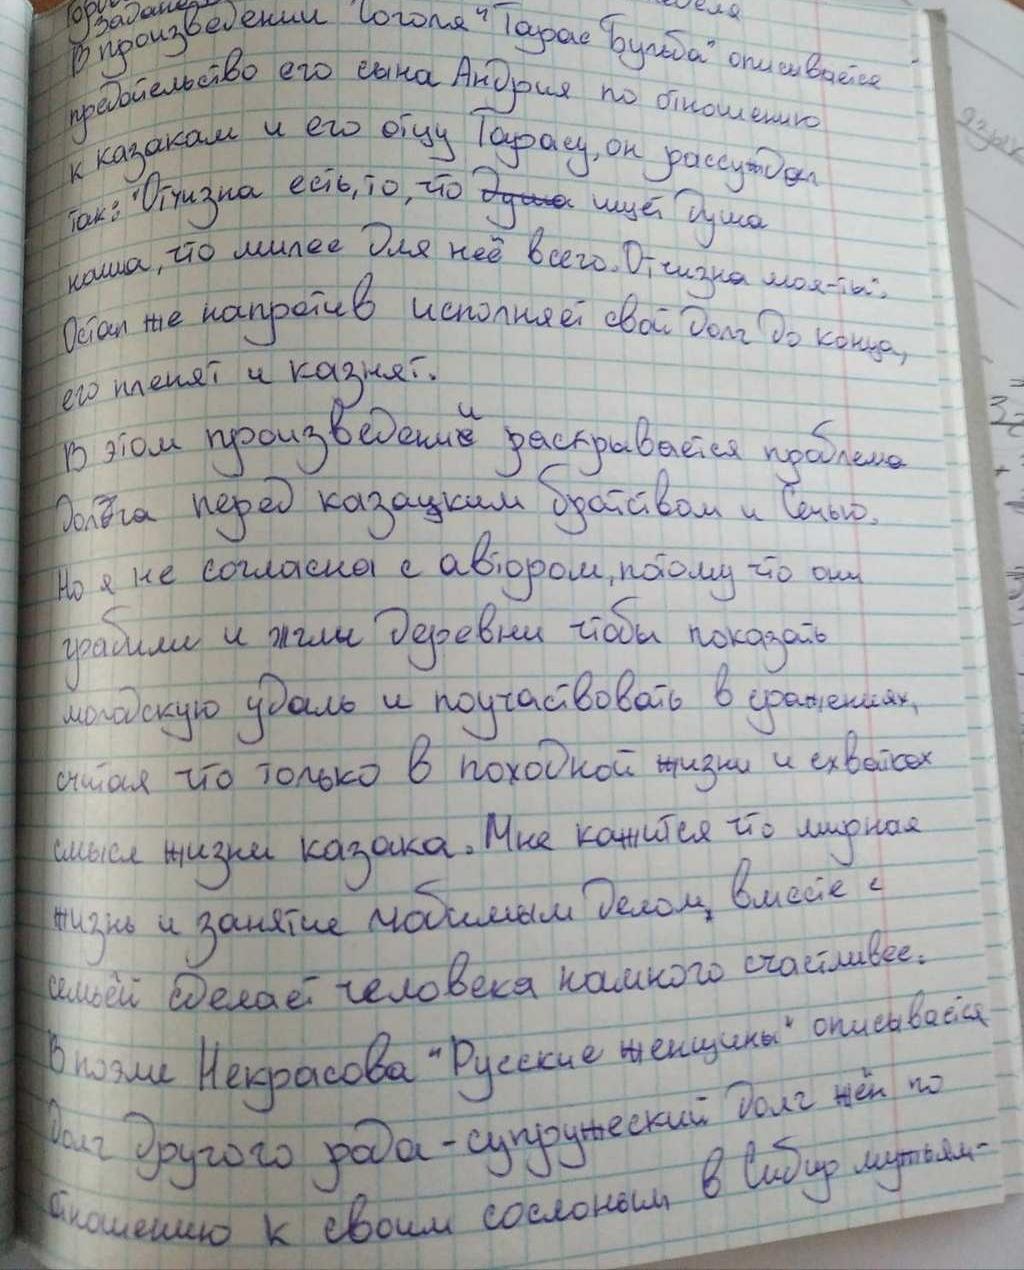 задание
В произведении Гоголя "Тарас Бульба" описывается
предательство его сына Андрия по отношению
к казакам и его отцу Тарасу, он рассуждал
так: "Отчизна есть, то, что душа ищет душа
наша, что милее для неё всего. Отчизна моя-ты".
Остап же напротив исполняет свой долг до конца,
его пленят и казнят.
В этом произведении раскрывается проблема
долга перед казацким братством и Сечью.
Но я не согласна с автором, потому что они
грабили и жгли деревни чтобы показать
молодскую удаль и поучаствовать в сражениях,
считая что только в походной жизни и схватках
смысл жизни казака. Мне кажится что мирная
жизнь и занятие любимым делом, вместе с
семьёй сделает человека намного счастливее.
В поэме Некрасова "Русские женщины" описывается
долг другого рода-супружеский долг жён по
отношению к своим сосланым в Сибир мужьям-
язык